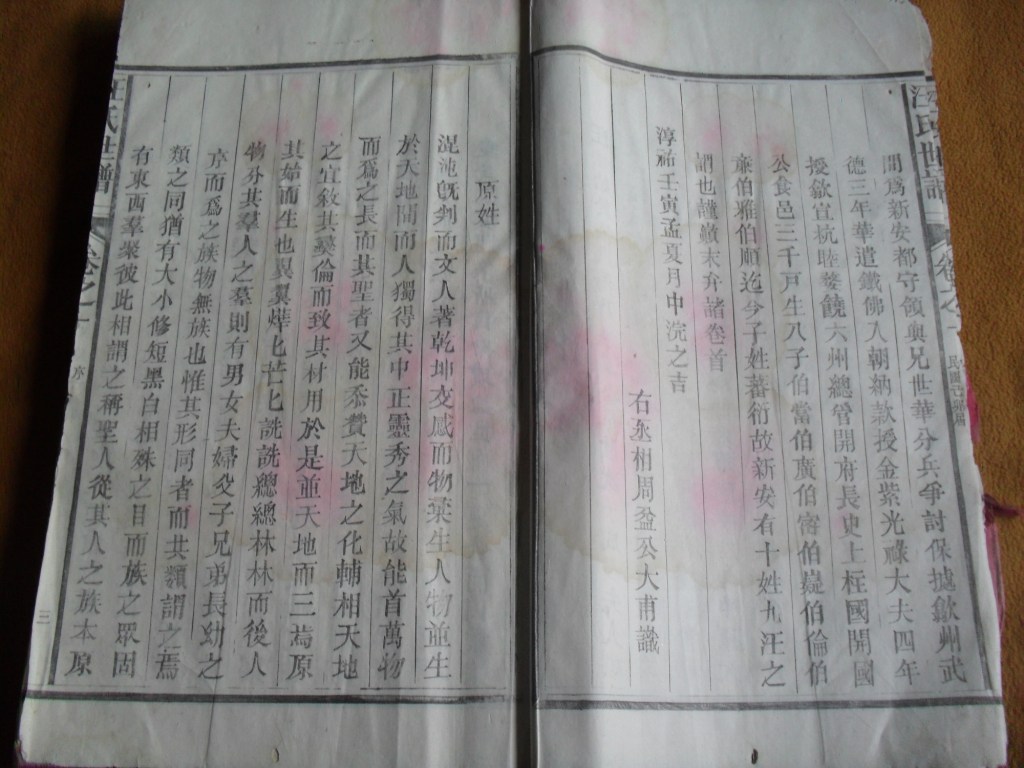 汪氏世譜
卷之一
間爲新安都守領與兄世華分兵爭討保據歙州武
德三年華遣鐵佛入朝納款授金紫光祿大夫四年
授歙宣杭睦婺饒六州總管開府長史上柱國開國
公食邑三千戸生八子伯當伯廣伯甯伯嘉伯倫伯
廉伯雅伯順迄今子姓蕃衍故新安有十姓九汪之
謂也謹綴末弁諸卷首
淳祐壬寅孟夏月中浣之吉
右丞相周益公大甫識
原姓
混沌旣判而文人著乾坤交感而物桒生人物並生
於天地間而人獨得其中正靈秀之氣故能首萬物
而爲之長而其聖者又能叅贊天地之化輔相天地
之宜敘其彝倫而致其材用於是並天地而三焉原
其始而生也異翼燁匕芒匕詵詵總總林林而後人
物分其羣人之羣則有男女夫婦父子兄弟長幼之
序而爲之族物無族也惟其形同者而其類謂之焉
類之同猶有大小修短黑白相殊之目而族之眾固
有東西羣衆彼此相謂之稱聖人從其人之族本原
汪氏世譜
卷之一
三